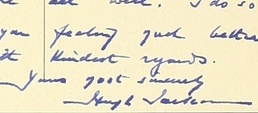 all well. I do so
you feeling much better
kindest regards.
Yours most sincerely
Hugh